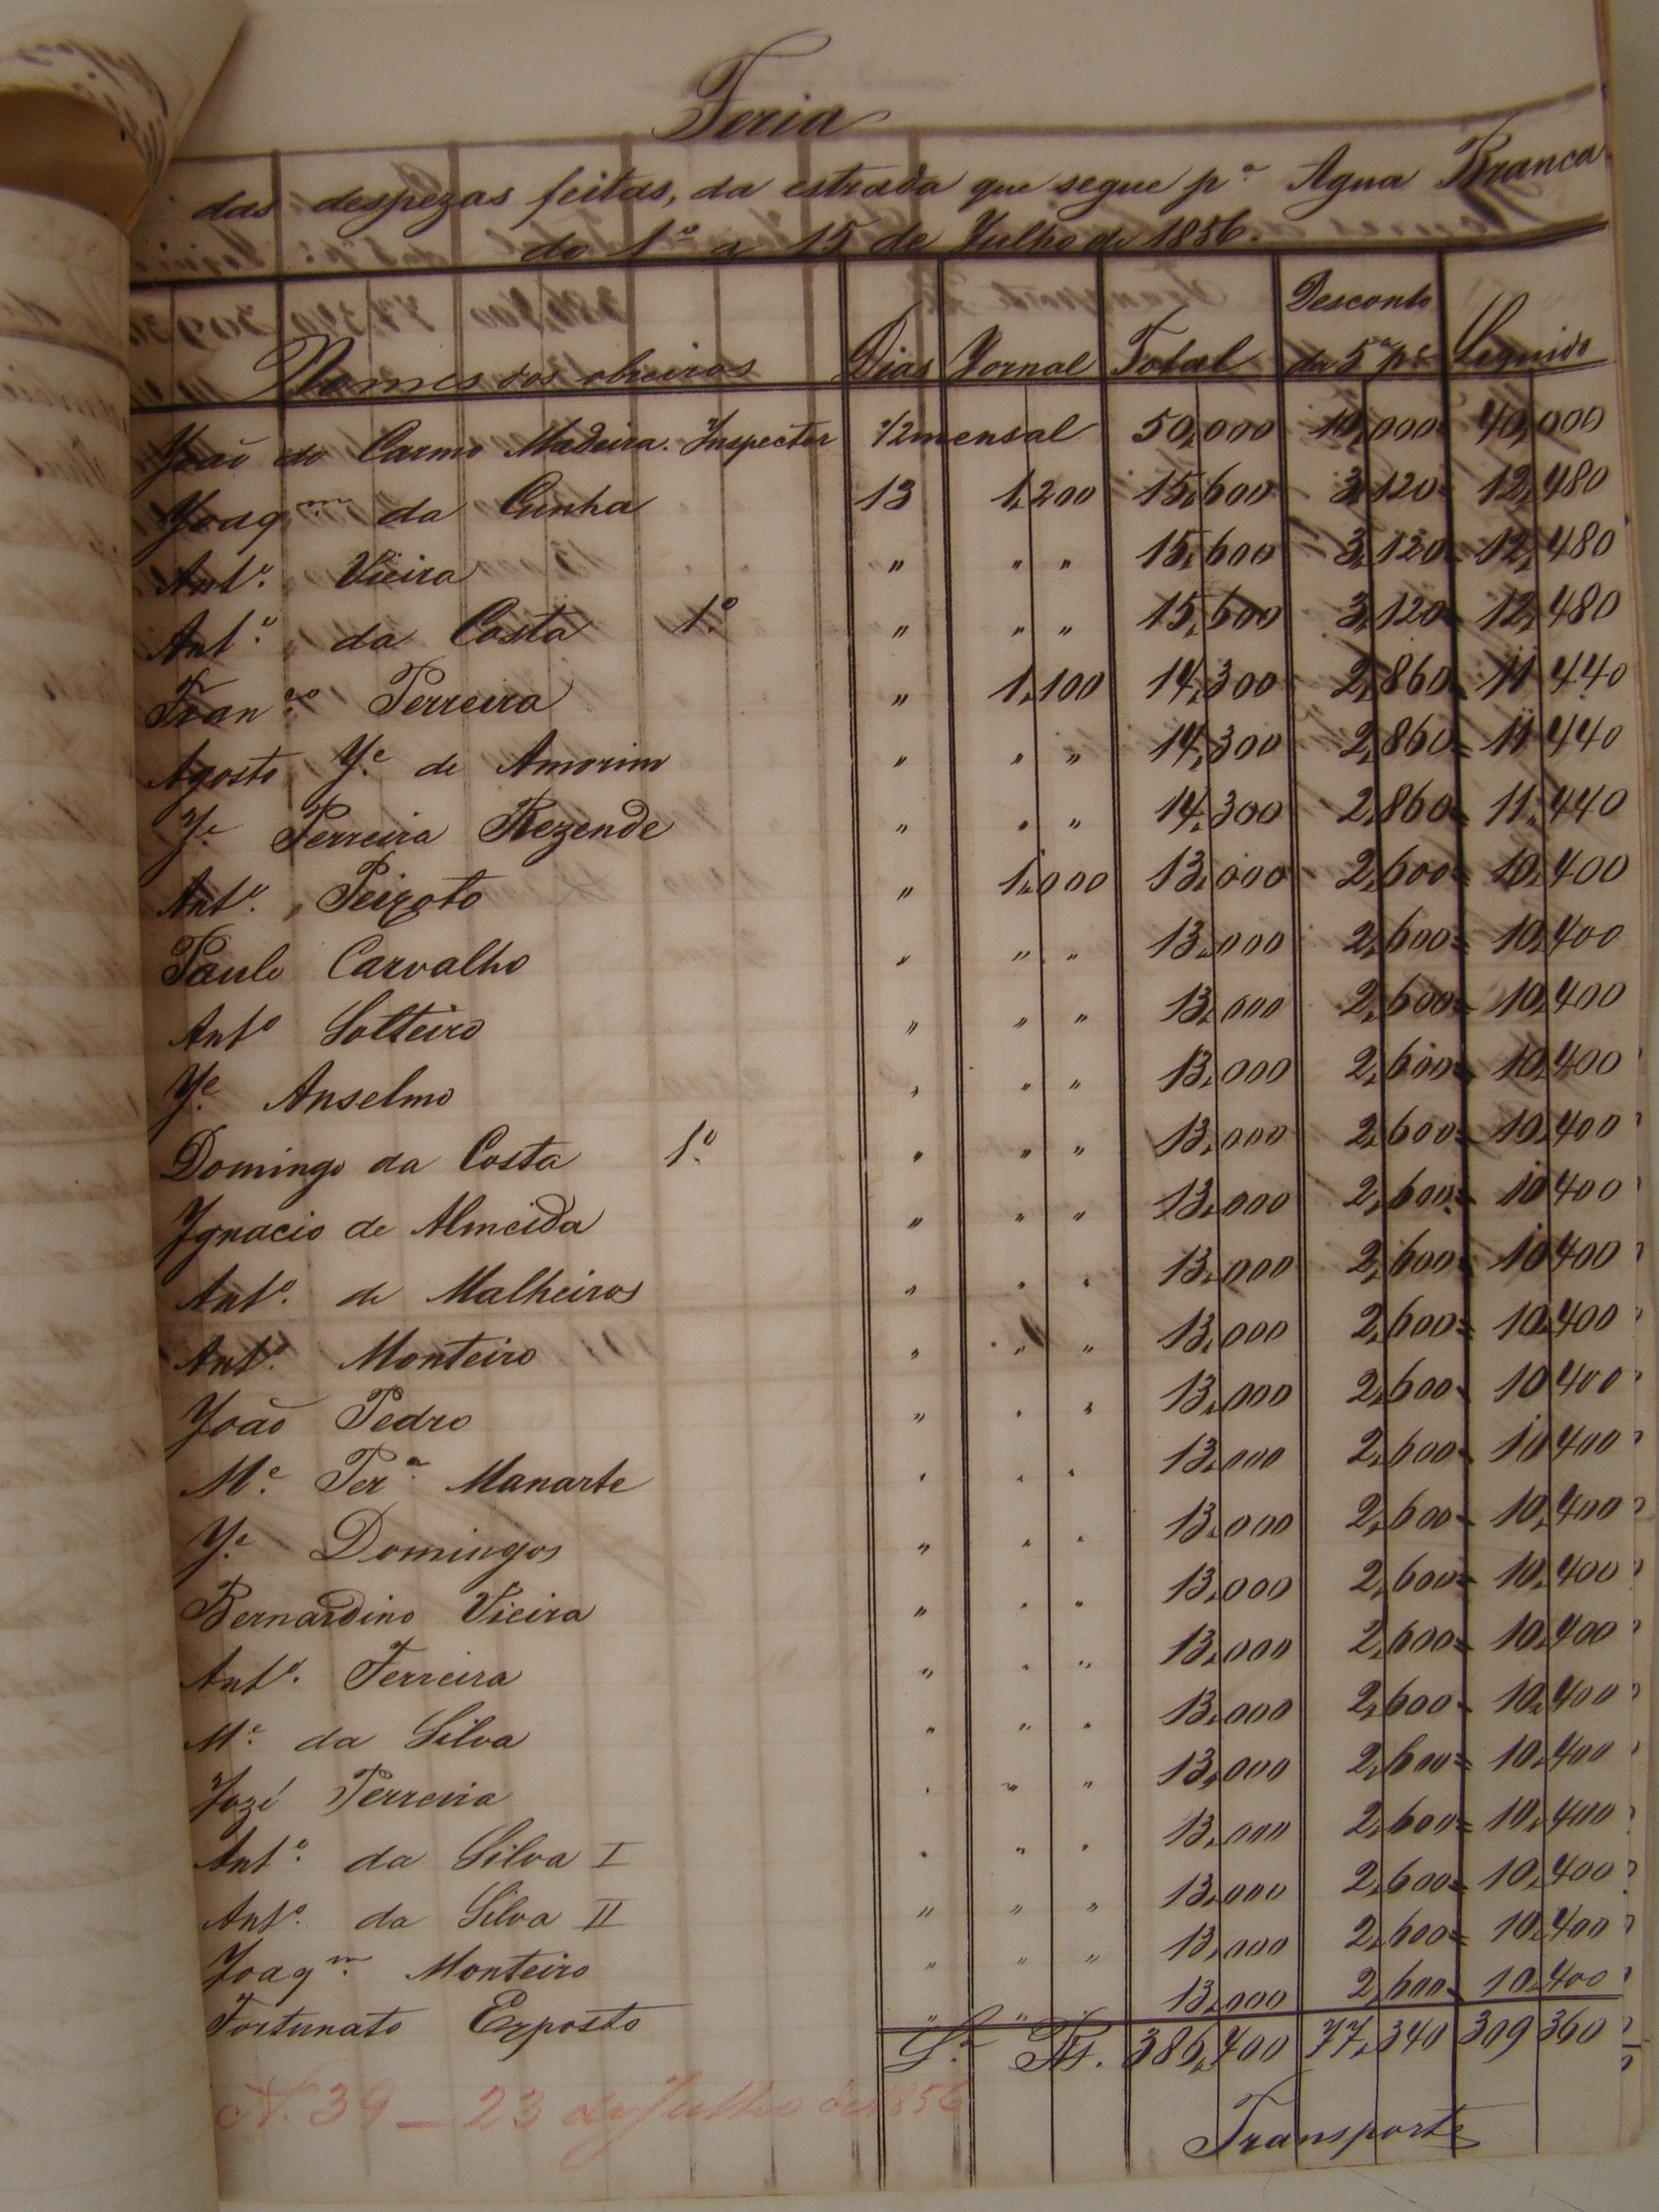 Feria
das despezas feitas, da estrada que segue pª Agua Branca
do 1º a 15 de Julho de 1856.
Nomes dos obreiros Dias Jornal Total Desconto da 5ª pᵉ Liquido
João do Carmo Madeira. Inspector 1/2 mensal 50,000 10,000 40,000
Joaqᵐ da Cunha 13 1,200 15,600 3,120 12,480
Antº. Vieira " " " 15,600 3,120 12,480
Antº. da Costa 1º " " " 15,600 3,120 12,480
Franᶜᵒ Perreira " 1,100 14,300 2,860 11,440
Agosto Jᵉ de Amorim " " " 14,300 2,860 11,440
Jᵉ Ferreira Rezende " " " 14,300 2,860 11,440
Antº. Peixoto " 1,000 13,000 2,600 10,400
Paulo Carvalho " " " 13,000 2,600 10,400
Antº Solteiro " " " 13,000 2,600 10,400
Jᵉ Anselmo " " " 13,000 2,600 10,400
Domingo da Costa 1º " " " 13,000 2,600 10,400
Ignacio de Almeida " " " 13,000 2,600 10,400
Antº. de Malheiros " " " 13,000 2,600 10,400
Antº. Monteiro " " " 13,000 2,600 10,400
João Pedro " " " 13,000 2,600 10,400
Mᵉ Perª Manarte " " " 13,000 2,600 10,400
Jᵉ Domingos " " " 13,000 2,600 10,400
Bernardino Vieira " " " 13,000 2,600 10,400
Antº. Ferreira " " " 13,000 2,600 10,400
Mᵉ da Silva " " " 13,000 2,600 10,400
Jozé Perreira " " " 13,000 2,600 10,400
Antº. da Silva I " " " 13,000 2,600 10,400
Antº. da Silva II " " " 13,000 2,600 10,400
Joaqᵐ Monteiro " " " 13,000 2,600 10,400
Fortunato Exposto " " " 13,000 2,600 10,400
Sª Rs. 386,700 77,340 309,360
N. 39 _ 23 de Julho de 1856
Transporte